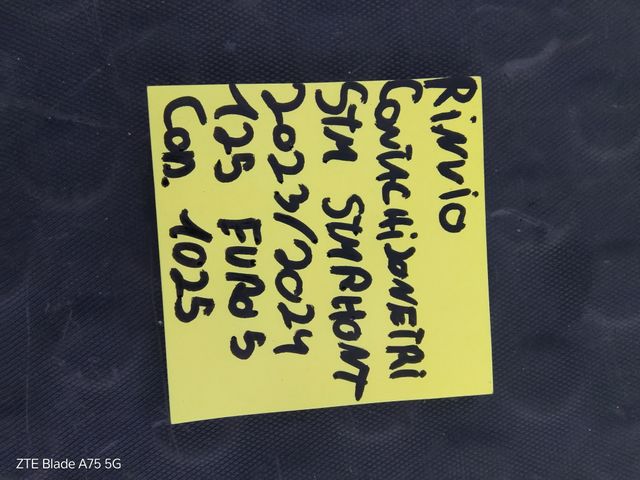 Rinvio
ContACHiLOMETRi
STM STMPHONT
2023/2024
125 EURO 5
Cod. 1025
ZTE Blade A75 5G